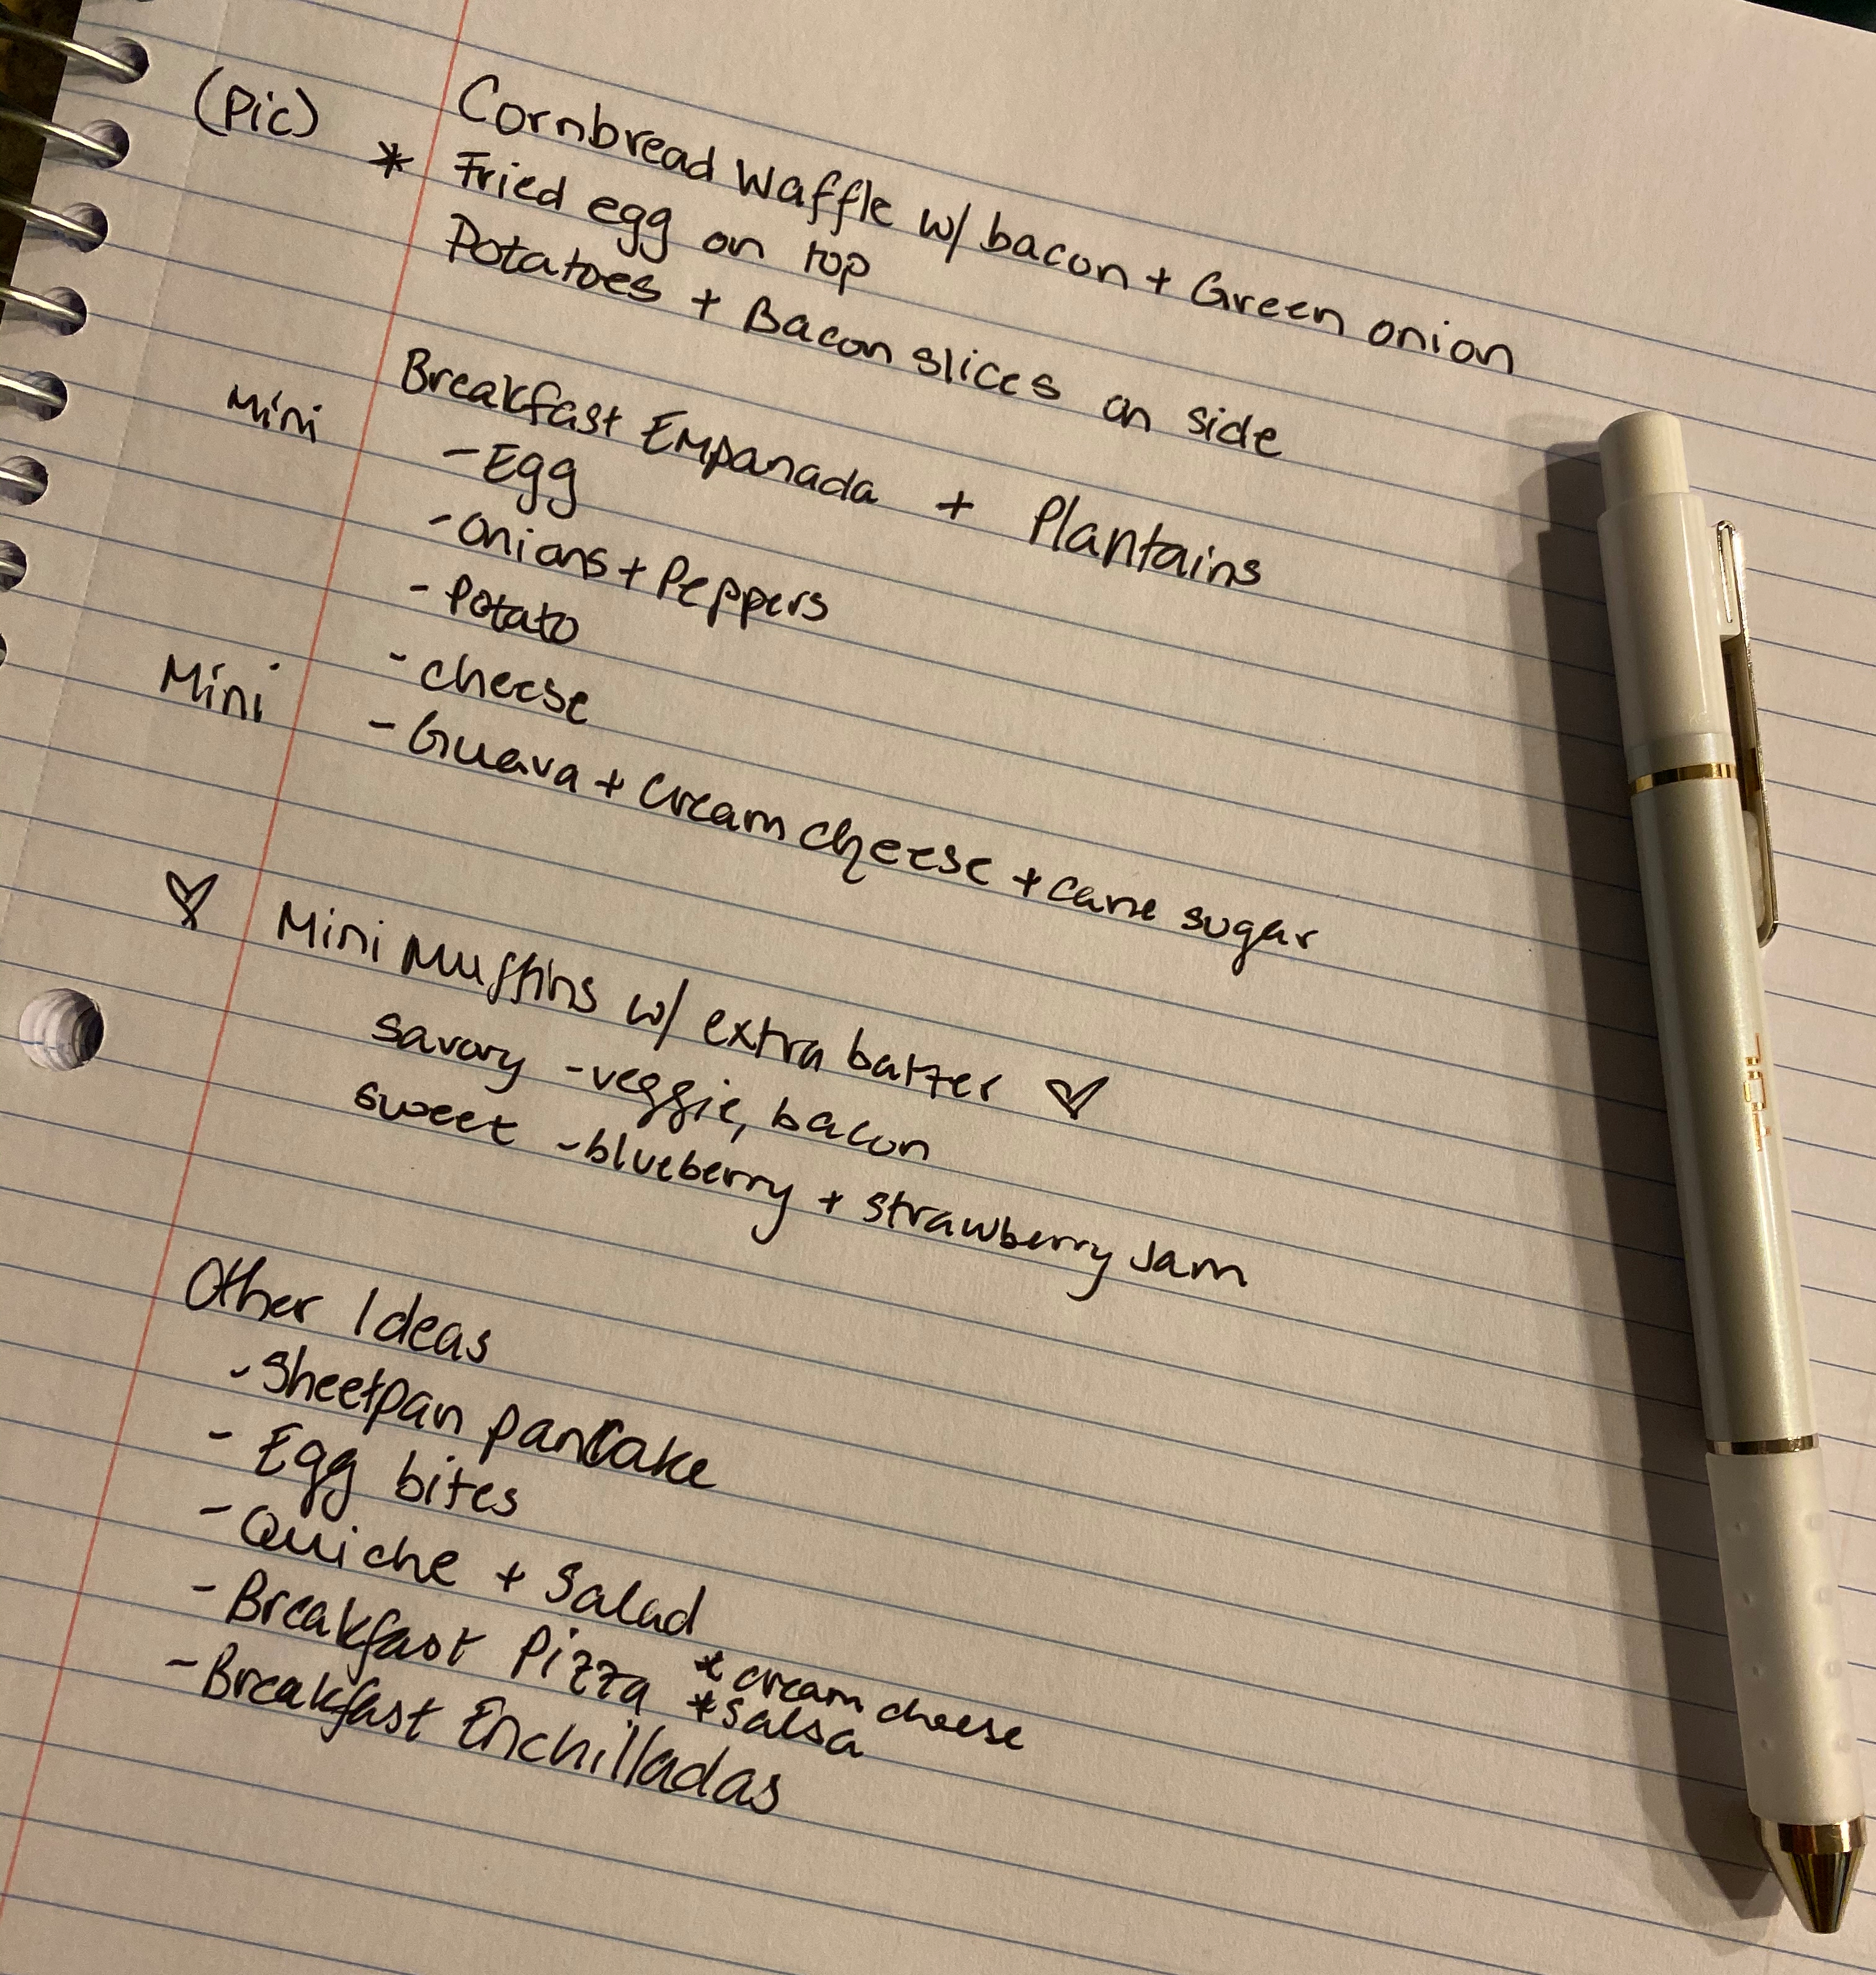 (Pic) Cornbread Waffle w/ bacon + Green onion
* Fried egg on top
Potatoes + Bacon slices on side
Mini Breakfast Empanada + Plantains
- Egg
- Onions + Peppers
- Potato
- cheese
Mini - Guava + Cream cheese + cane sugar
♡ Mini Muffins w/ extra batter ♡
savory - veggie, bacon
sweet - blueberry + strawberry Jam
Other Ideas
- Sheetpan pancake
- Egg bites
- Quiche + Salad
- Breakfast Pizza * cream cheese
* salsa
- Breakfast Enchilladas